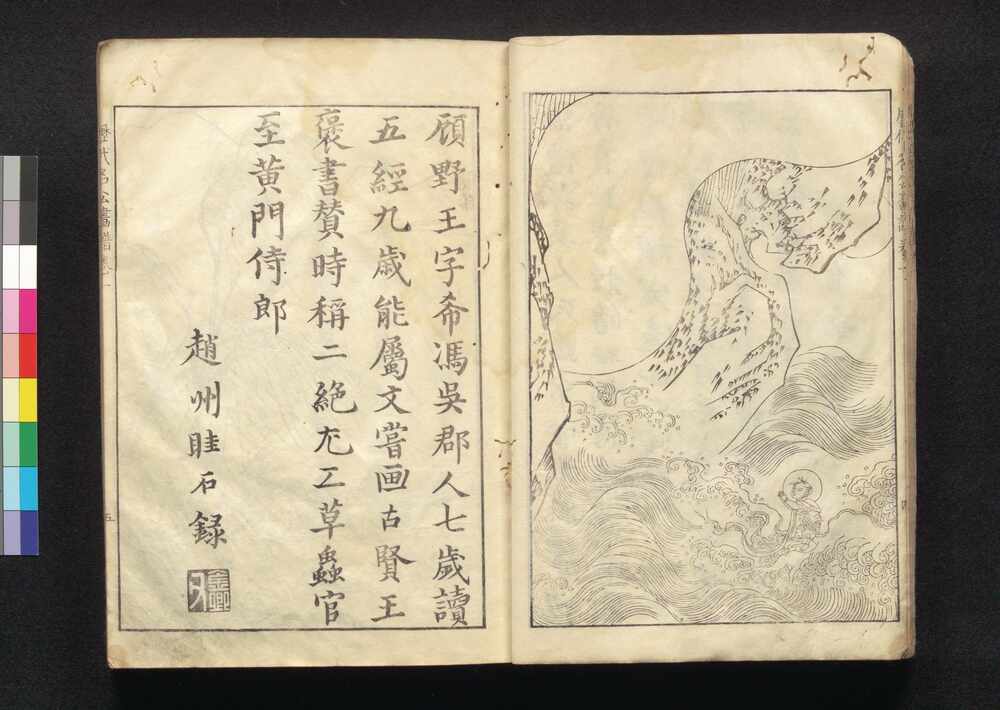 顧野王字希馮吳郡人七歲讀
五經九歲能屬文嘗画古賢王
褒書贊時稱二絕尤工草蟲官
至黃門侍郎
趙州眭石錄
五